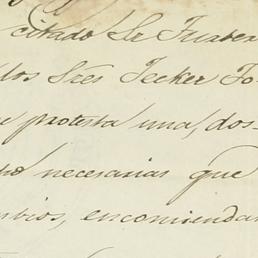 citado Sr Furber
los Sres Jecker To
e protesta una, dos
necesarias que
mbios, encomienda